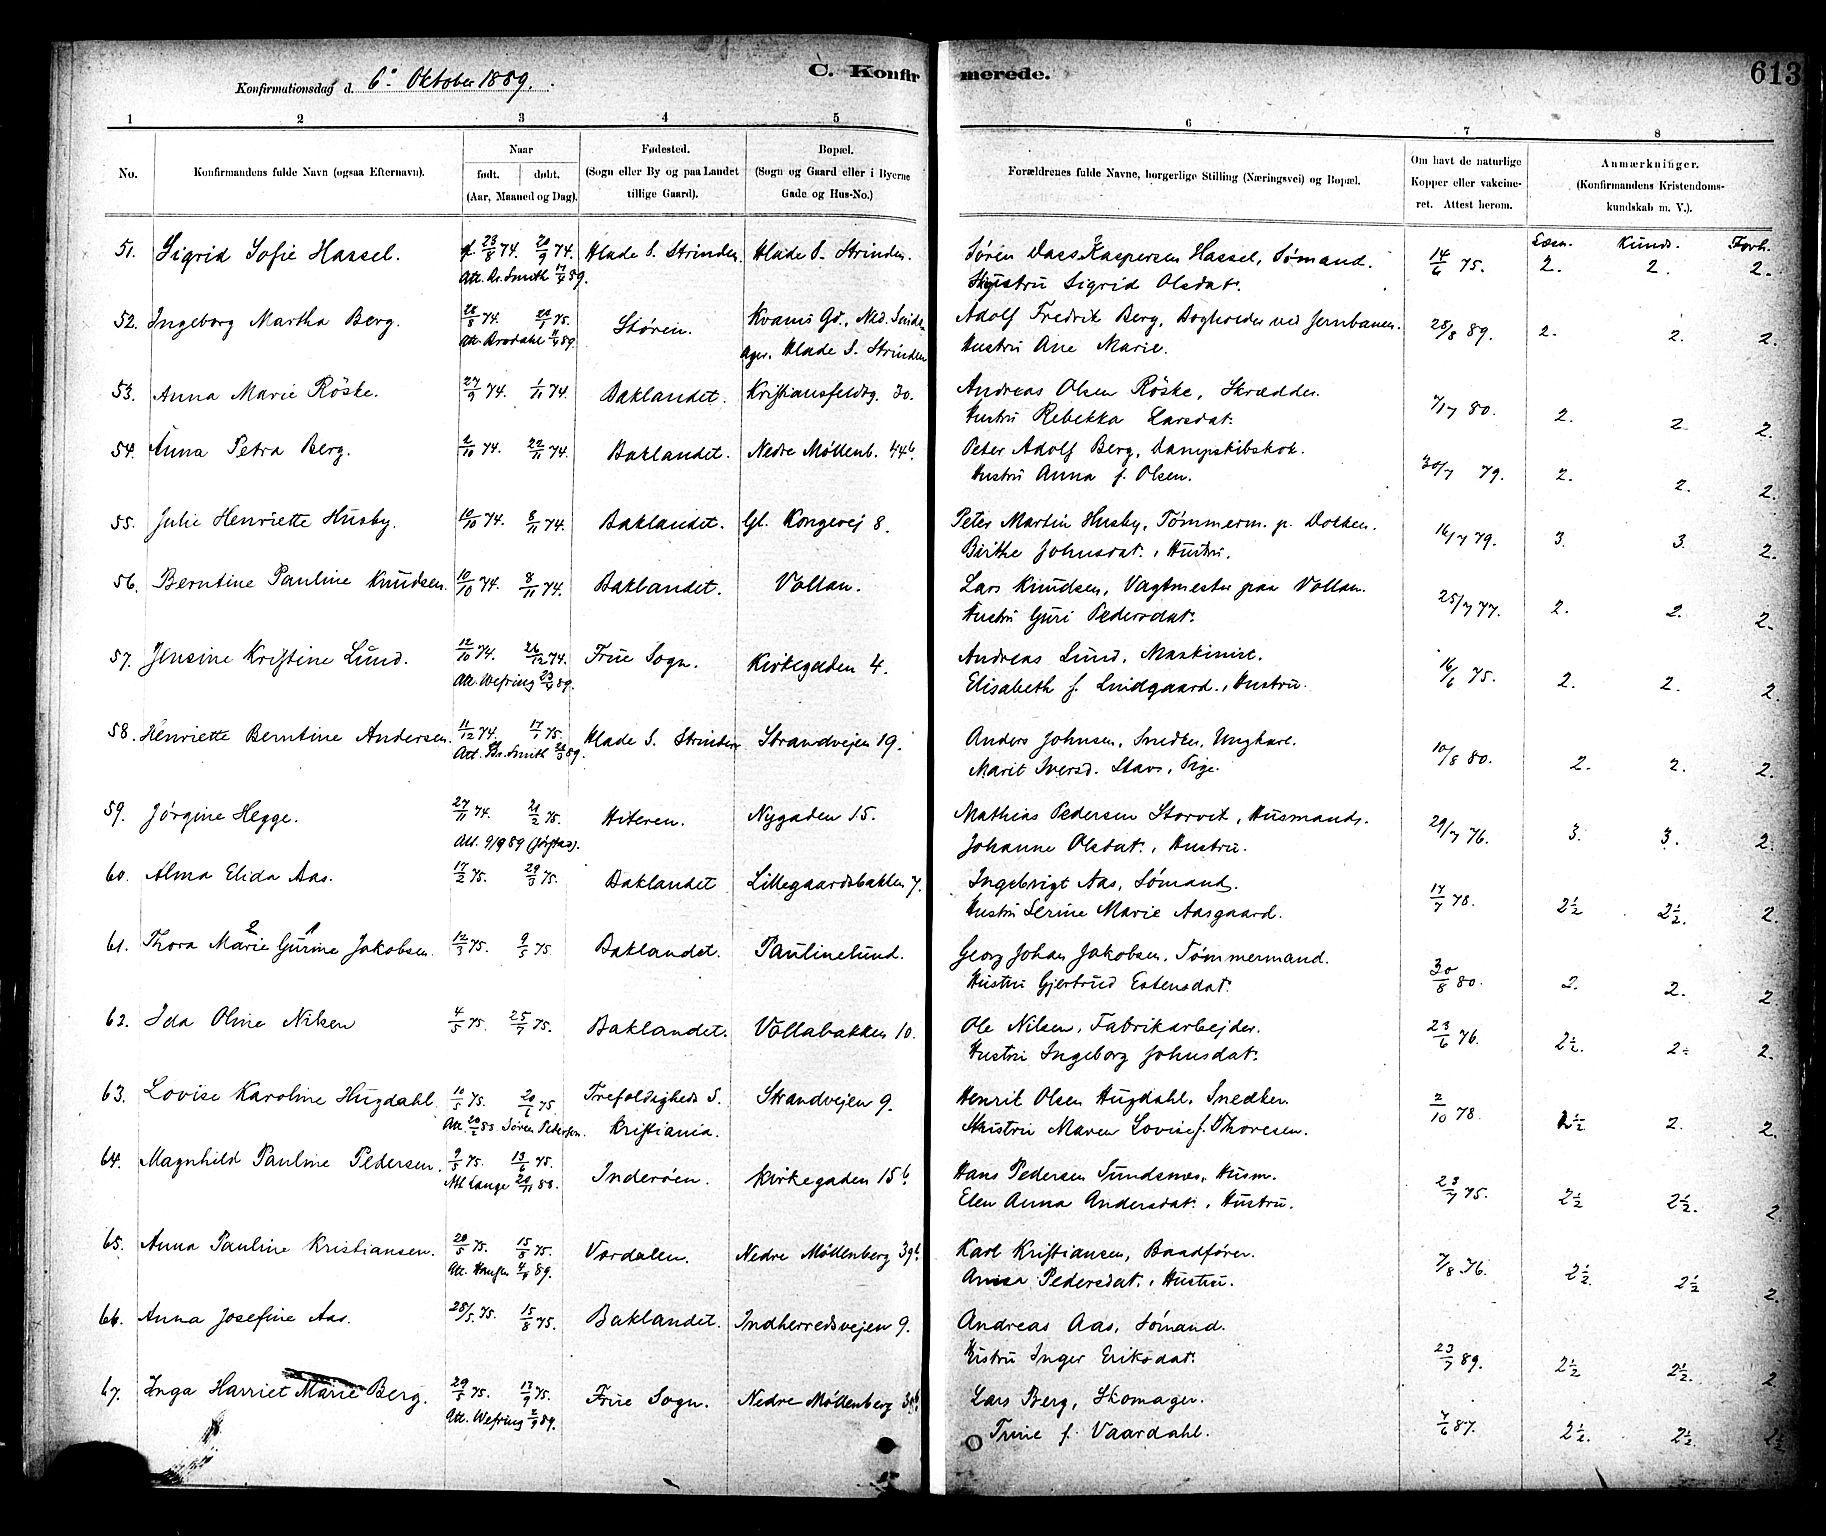 C. Konfirmerede. 613
Konfirmationsdag d. 6te Oktober 1889.
1 2 3 4 5 6 7 8
No. Konfirmandens fulde Navn (ogsaa Efternavn). Naar født. døbt. (Aar, Maaned og Dag). Fødested. (Sogn eller By og paa Landet tillige Gaard). Bopæl. (Sogn og Gaard eller i Byerne Gade og Hus-No.) Forældrenes fulde Navne, borgerlige Stilling (Næringsvei) og Bopæl. Om havt de naturlige Kopper eller vakcineret. Attest herom. Anmærkninger. (Konfirmandens Kristendomskundskab m. V.).
Læsn. Kunds. Forh.
51. Sigrid Sofie Hassel. f. 23/8 74. 20/9 74. Hlade S. Strinden. Hlade S. Strinden. Søren Dass Kaspersen Hassel, Sømand. 14/6 75. 2. 2. 2.
Att. Br. Smith 17/4 89. Hustru Sigrid Olsdat.
52. Ingeborg Martha Berg. 28/8 74. 20/1 75. Støren. Kvams Gd., Ned. Singsaker, Hlade S. Strinden Adolf Fredrik Berg, Bogholder ved Jernbanen. 28/8 89. 2. 2. 2.
Hustru Ane Marie.
53. Anna Marie Röske. 27/9 74. 1/11 74. Baklandet. Kristiansfeldtg. 30. Andreas Olsen Röske, Skrædder. 7/7 80. 2. 2. 2.
Hustru Rebekka Larsdat.
54. Anna Petra Berg. 2/10 74. 22/11 74. Baklandet. Nedre Møllenb. 44b. Peter Adolf Berg, Dampskibskok. 30/7 79. 2. 2. 2.
Hustru Anna f. Olsen.
55. Julie Henriette Husby. 10/10 74. 8/11 74. Baklandet. Gl. Kongevej 8. Peter Martin Husby, Tømmerm. p. Dokken. 16/7 79. 3. 3. 2.
Birthe Johnsdat., Hustru.
56. Berntine Pauline Knudsen. 10/10 74. 8/11 74. Baklandet. Vollan. Lars Knudsen, Vagtmester paa Vollan. 25/7 77. 2. 2. 2.
Hustru Guri Pedersdat.
57. Jensine Kristine Lund. 12/10 74. 26/12 74. Frue Sogn. Kirkegaden 4. Andreas Lund, Maskinist. 16/6 75. 2. 2. 2.
Att. Wefring 23/9 89. Elisabeth f. Lindgaard., Hustru.
58. Henriette Berntine Andersen. 11/12 74. 17/1 75. Hlade S. Strinden Strandvejen 19. Anders Johnsen, Snedker, Ungkarl. 10/8 80. 2. 2. 2.
Marit Iversd. Stavs, Pige.
59. Jørgine Hegge. 27/11 74. 21/2 75. Hiteren. Nygaden 15. Mathias Pedersen Storvik, Husmand. 29/7 76. 3. 3. 2.
Att. 9/9 89 Johanne Olsdat., Hustru.
60. Alma Elida Aas. 17/2 75. 29/3 75. Baklandet Lillegaardsbakken 7. Ingebrigt Aas, Sømand. 17/7 78. 2½ 2½. 2.
Hustru Serine Marie Aasgaard.
61. Thora Marie Gurine Jakobsen. 12/3 75. 9/5 75. Baklandet. Paulinelund. Georg Johan Jakobsen, Tømmermand. 30/8 80. 2. 2. 2
Hustru Gjertrud Estensdat.
62. Ida Oline Nilsen 4/5 75. 25/7 75. Baklandet. Vollabakken 10. Ole Nilsen, Fabrikarbejder. 23/6 76. 2½. 2. 2.
Hustru Ingeborg Johnsdat.
63. Lovise Karoline Hugdahl 10/5 75. 20/6 75 Trefoldigheds S. Kristiania. Strandvejen 9. Henrik Olsen Hugdahl, Snedker. 2/10 78. 2½ 2. 2.
Søren Pedersen. Hustru Maren Lovise f. Thoresen.
64. Magnhild Pauline Pedersen. 9/5 75. 13/6 75. Inderøen. Kirkegaden 15b. Hans Pedersen Sundsnes, Husm. 23/7 75. 2½ 2½. 2.
Att. Lange Elen Anna Andersdat., Hustru.
65. Anna Pauline Kristiansen. 20/5 75. 15/8 75. Værdalen. Nedre Møllenberg 39b. Karl Kristiansen, Baadfører. 7/8 76. 2½. 2½ 2.
Anna Pedersdat., Hustru.
66. Anna Josefine Aas. 28/5 75. 15/8 75. Baklandet. Indherredsvejen 9. Andreas Aas, Sømand. 23/7 89. 2½ 2½. 2.
Hustru Inger Eriksdat.
67. Inga Harriet Marie Berg. 29/5 75. 12/9 75. Frue Sogn. Nedre Møllenberg Lars Berg, Skomager. 7/6 87. 2½. 2½. 2½
Att. Wefring 2/9 89. Trine f. Vaardahl.